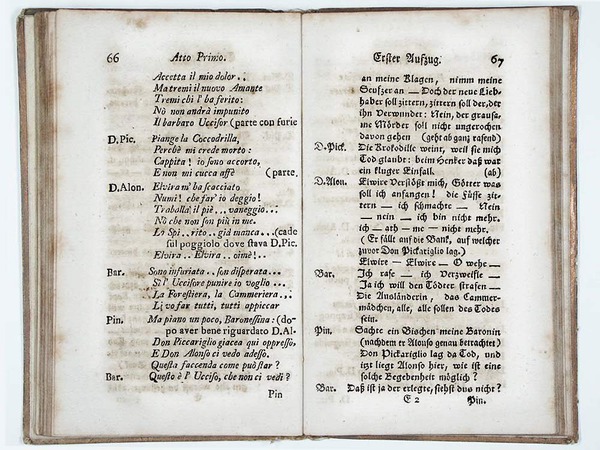 66 Atto Primo.
Accetta il mio dolor..
Ma tremi il nuovo Amante
Tremi chi l' ha ferito:
Nò non andrà impunito
Il barbaro Uccisor (parte con furie
D. Pic. Piange la Coccodrilla,
Perchè mi crede morto:
Cappita! io sono accorto,
E non mi cucca affè (parte.
D. Alon. Elvira m' ha scacciato
Numi! che far' io deggio!
Traballa il piè... vaneggio..:
Nò che non son più in me.
Lo Spi..rito.. già manca...(cade
sul poggiolo dove stava D. Pic.
Elvira.. Elvira.. oimè!..
Bar. Sono infuriata.. son disperata...
Sì l' Uccisore punire io voglio...
La Forestiera, la Cammeriera..:
Li vo far tutti, tutti appiccar
Pin. Ma piano un poco, Baronessina: (do-
po aver bene riguardato D. Al-
Don Piccariglio giacea quì oppresso,
E Don Alonso ci vedo adesso.
Questa faccenda come può star?
Bar. Questo è l' Ucciso, che non ci vedi?
Pin
Erster Aufzug. 67
an meine Klagen, nimm meine
Seufzer an — Doch der neue Lieb-
haber soll zittern, zittern soll der, der
ihn Verwundet: Nein, der grausa-
me Mörder soll nicht ungerochen
davon gehen (geht ab ganz rasend)
D. Pick. Die Krokodille weint, weil sie mich
Tod glaubt: beim Henker daß war
ein kluger Einfall. (ab)
D. Alon. Elwire Verstößt mich, Götter was
soll ich anfangen! die Füsse zit-
tern — ich schmachte — Nein
— nein — ich bin nicht mehr.
ich — ath — me — nicht mehr.
(Er fällt auf die Bank, auf welcher
zuvor Don Pickariglio lag.)
Elwire — Elwire — O wehe —
Bar. Ich rase — ich Verzweifle —
Ja ich will den Tödter strafen —
Die Ausländerin, das Cammer-
mädchen, alle, alle sollen des Todes
sein.
Pin. Sachte ein Bischen meine Baronin
(nachdem er Alonso genau betrachtet)
Don Pickariglio lag da Tod, und
izt liegt Alonso hier, wie ist eine
solche Begebenheit möglich?
Bar. Daß ist ja der erlegte, siehst dus nicht?
E 2 Pin.